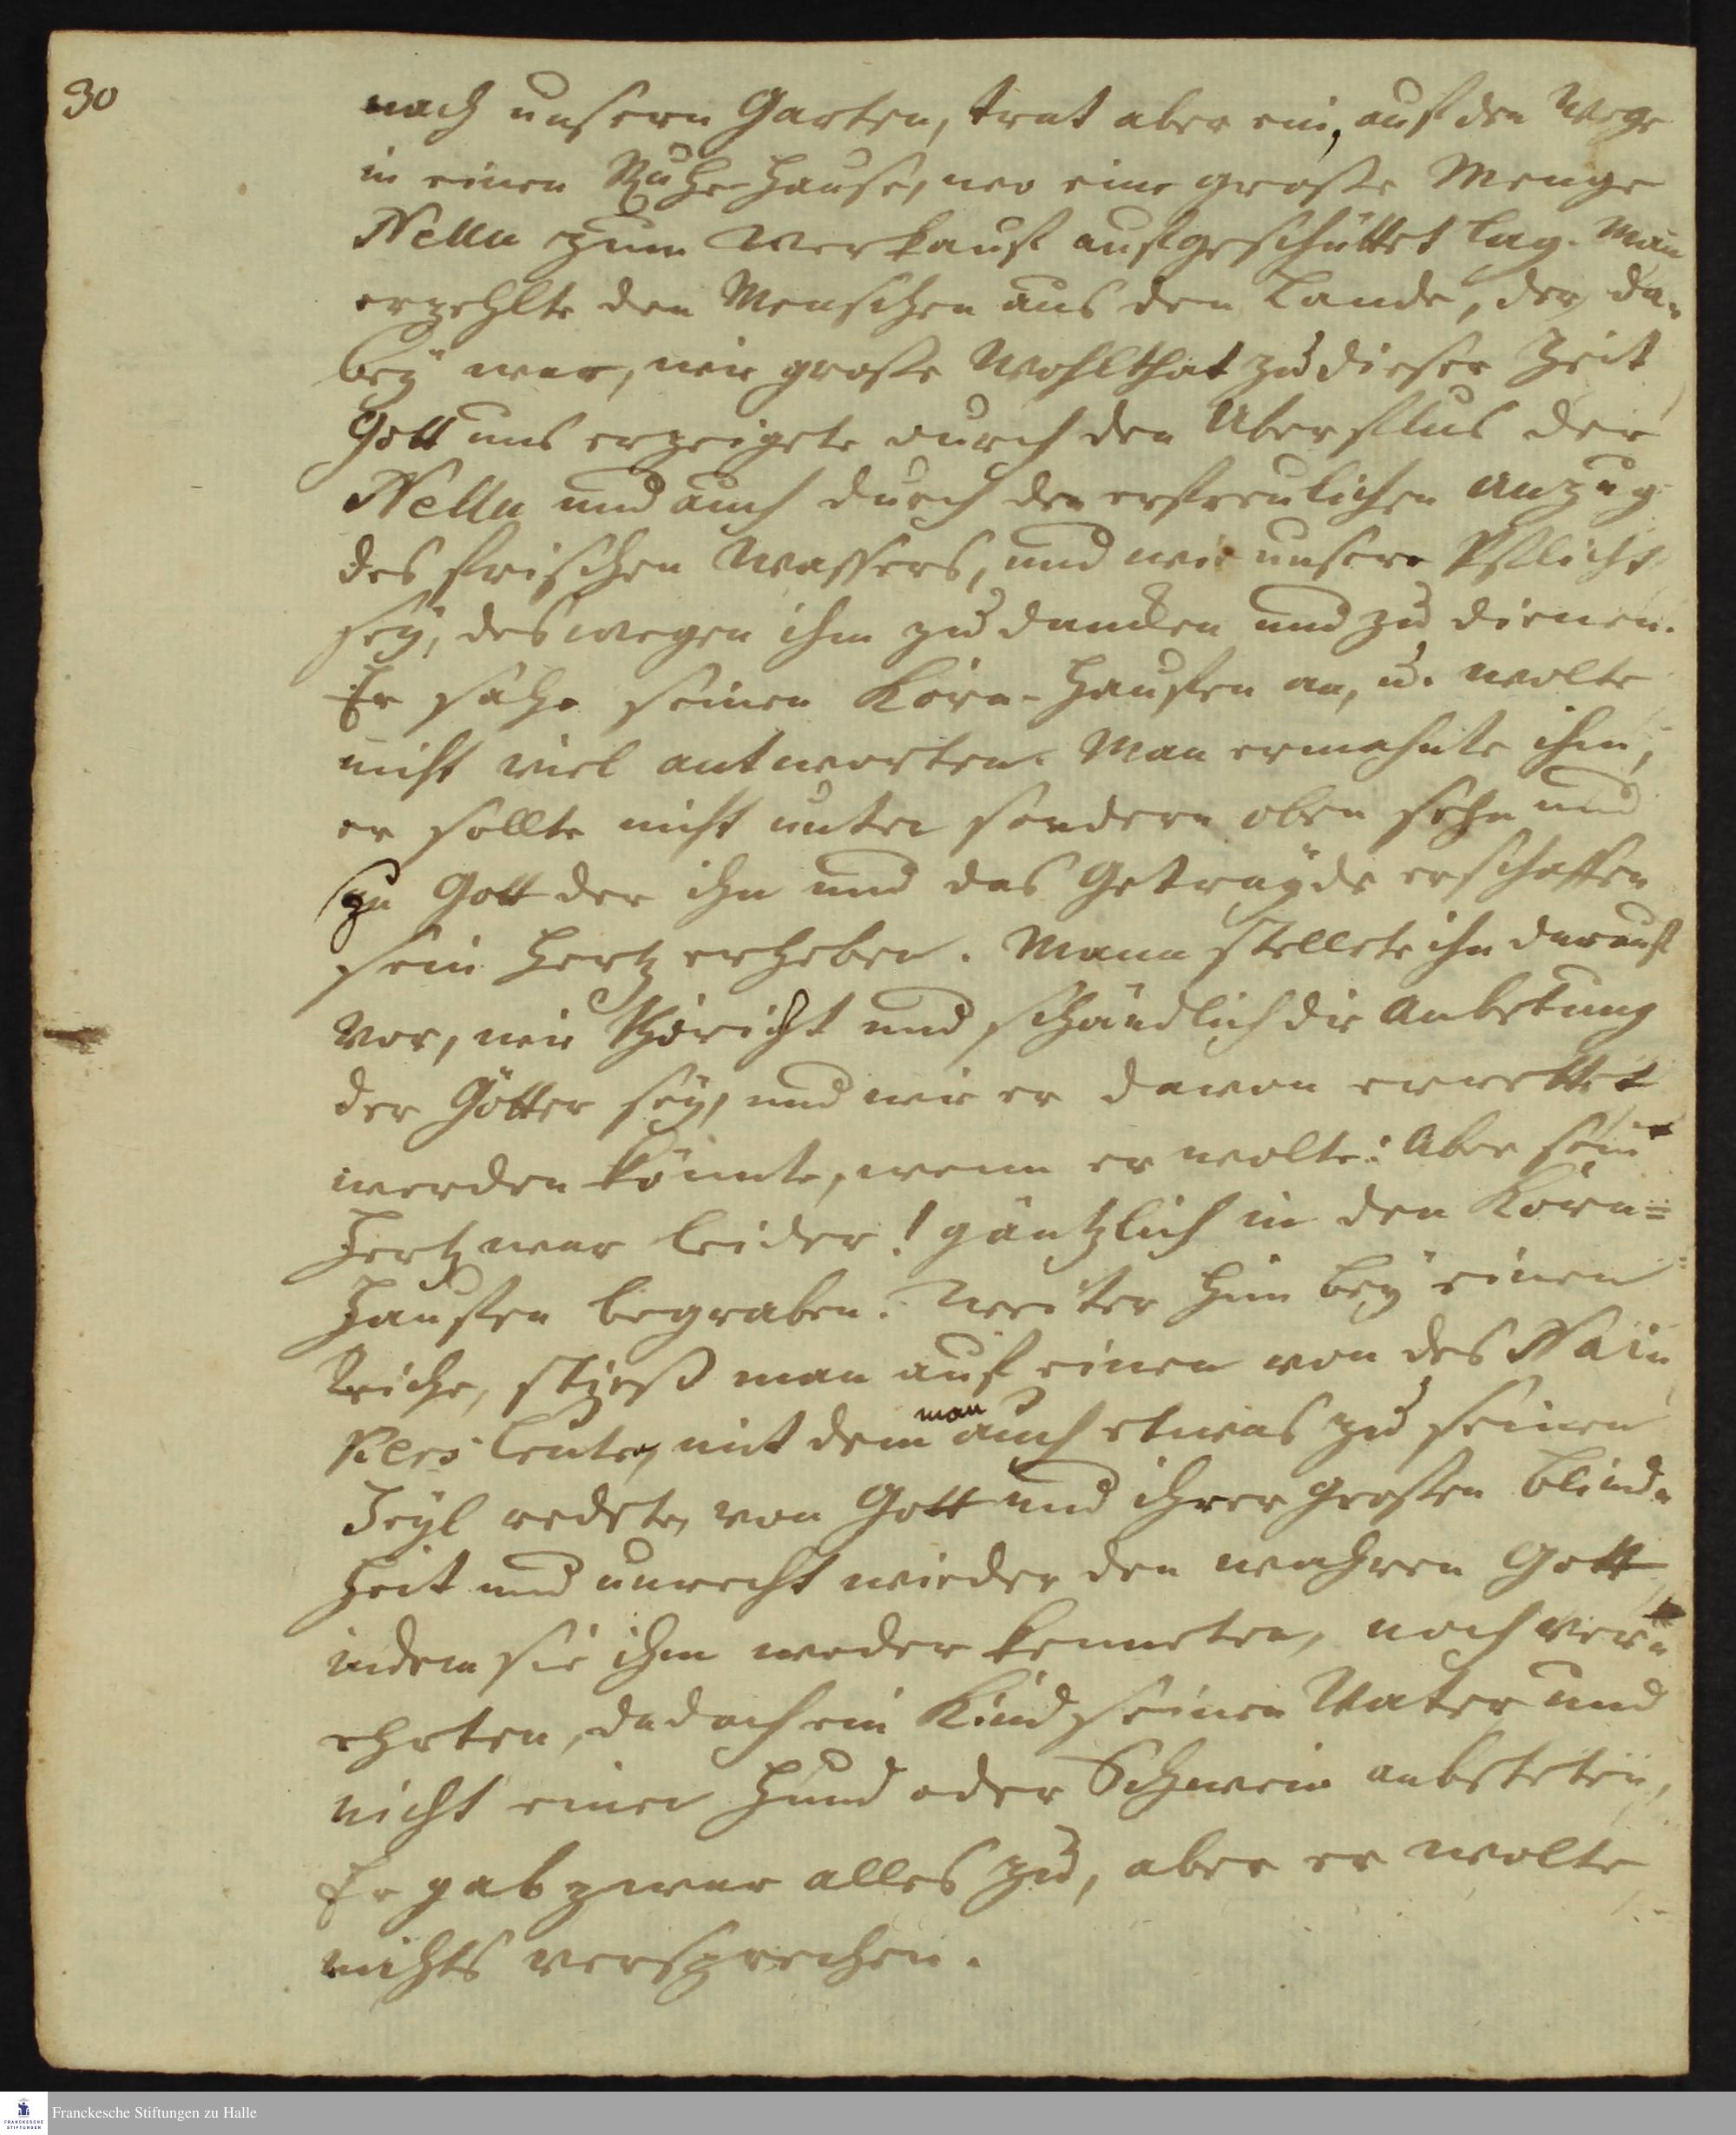 30
nach unsern Garten, trat aber ein, auf den Wege
in einen Ruhe-Hause, wo eine große Menge
Nellu zum Verkauf aufgeschüttet lag. Man
erzehlte den Menschen aus den Lande, der da-
bey war, wie große Wohlthat zu dieser Zeit
Gott uns erzeigete durch den Uberflus der
Nellu und auch durch den erfreulichen Anzug
des frischen Wassers, und wie unsere Pflicht
sey, deswegen ihm zu dancken und zu dienen.
Er sahe seinen Korn-Hauffen an, u. wolte
nicht viel antworten. Man ermahnte ihm,
er sollte nicht unten sondern oben sehn und
zu Gott der ihn und das Getrayde erschaffen
sein Hertz erheben. Mann stellete ihn darauf
vor, wie thöricht und schändlich die Anbetung
der Götter sey, und wie er davon errettet
werden könnte, wenn er wolte: Aber sein
Hertz war leider! gäntzlich in den Korn=
Hauffen begraben. Weiter hin bey einen
Teiche, stieß man auf einen von des Nain
Kers Leuten, mit dem man auch etwas zu seinen
Heyl redete, von Gott und ihrer großen Blind-
heit und unrecht wieder den wahren Gott
indem sie ihm weder kenneten, noch ver-
ehrten, da doch ein Kind seinen Vater und
nicht einen Hund oder Schwein anbeteten,
Er gab zwar alles zu, aber er wolte
nichts versprechen.
Franckesche Stiftungen zu Halle
FRANCKESCHE STIFTUNGEN